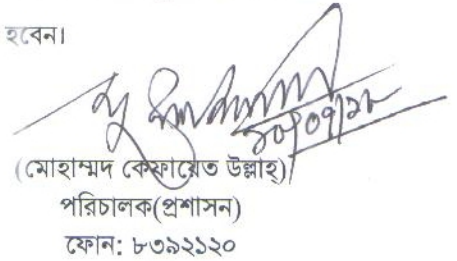 হবেন।
(মোহাম্মদ কেফায়েত উল্লাহ্)
পরিচালক(প্রশাসন)
ফোন: ৮৩৯২১২০